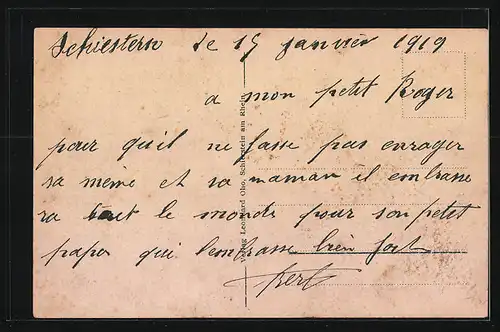 Schiestern le 15 janvier 1919
a mon petit Roger
pour qu'il ne fasse pas enrager
sa mémé et sa maman il embrasse
ra tout le monde pour son petit
papa qui l'embrasse bien fort
Verlag Leonhard Oho, Schierstein am Rhein